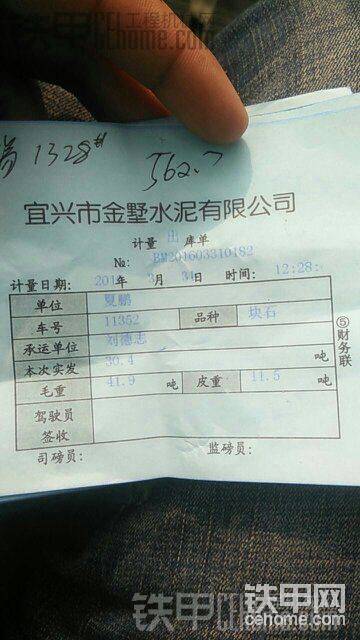 铁甲 工程机械网
cehome.com
1328# 562.7
宜兴市金墅水泥有限公司
计量 出 库单
№: BM201603310182
计量日期: 201 年 3 月 31 时间: 12:28:
单位 夏鹏
车号 11352 品种 块石
承运单位 刘德志
本次实发 30.4 吨
毛重 41.9 吨 皮重 11.5 吨
驾驶员
签收
司磅员: 监磅员:
⑤财务联
铁甲网
cehome.com